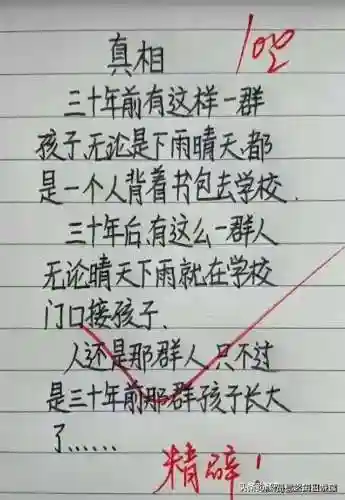 真相
100
三十年前有这样一群
孩子,无论是下雨晴天,都
是一个人背着书包去学校.
三十年后,有这么一群人
无论晴天下雨就在学校
门口接孩子.
人还是那群人,只不过
是三十年前那群孩子长大
了......
精辟!